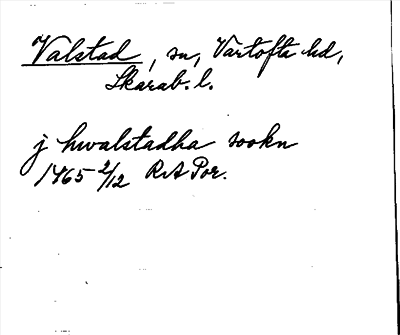 Valstad, sn, Vartofta hd,
Skarab. l.
j hwalstadha sookn
1465 2/12 RA Por.